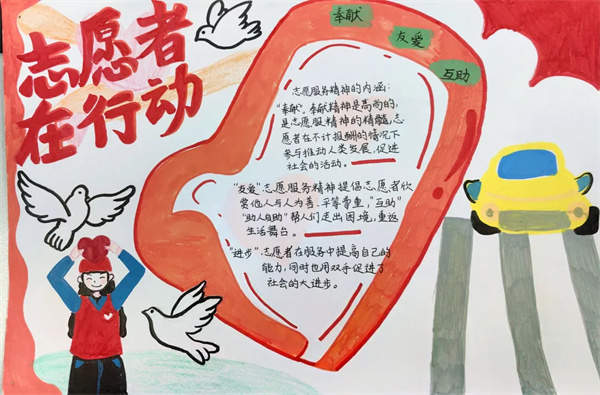 志愿者
在行动
奉献
友爱
互助
志愿服务精神的内涵:
"奉献",奉献精神是高尚的,
是志愿服精神的精髓,志
愿者在不计报酬的情况下
参与推动人类发展,促进
社会的活动。
"友爱"志愿服务精神提倡志愿者欣
赏他人与人为善、平等尊重,"互助"
"助人自助"帮人们走出困境,重返
生活舞台。
"进步",志愿者在服务中提高自己的
能力,同时也用双手促进了
社会的大进步。